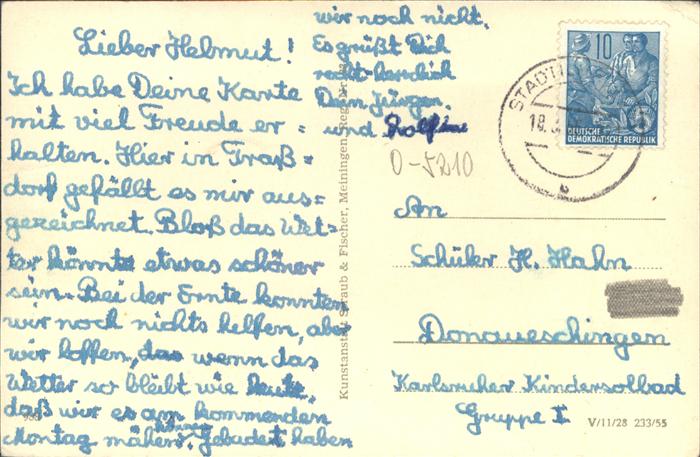 Lieber Helmut!
Ich habe Deine Karte
mit viel Freude er=
halten. Hier in Traß=
dorf gefällt es mir aus=
gezeichnet. Bloß das Wet=
ter könnte etwas schöner
sein. Bei der Ernte konnten
wir noch nichts helfen, aber
wir hoffen, das wenn das
Wetter so bleibt wie heute,
daß wir es am kommenden
Montag mähen können. Gebadet haben
wir noch nicht.
Es grüßt Dich
recht herzlich
Dein Jürgen.
und
0-5210
Kunstanstalt Straub & Fischer, Meiningen
STADTI
18.
b
10
DEUTSCHE
DEMOKRATISCHE REPUBLIK
An
Schüler H. Hahn
Donaueschingen
Karlsruher Kindersolbad
Gruppe I
V/11/28 233/55